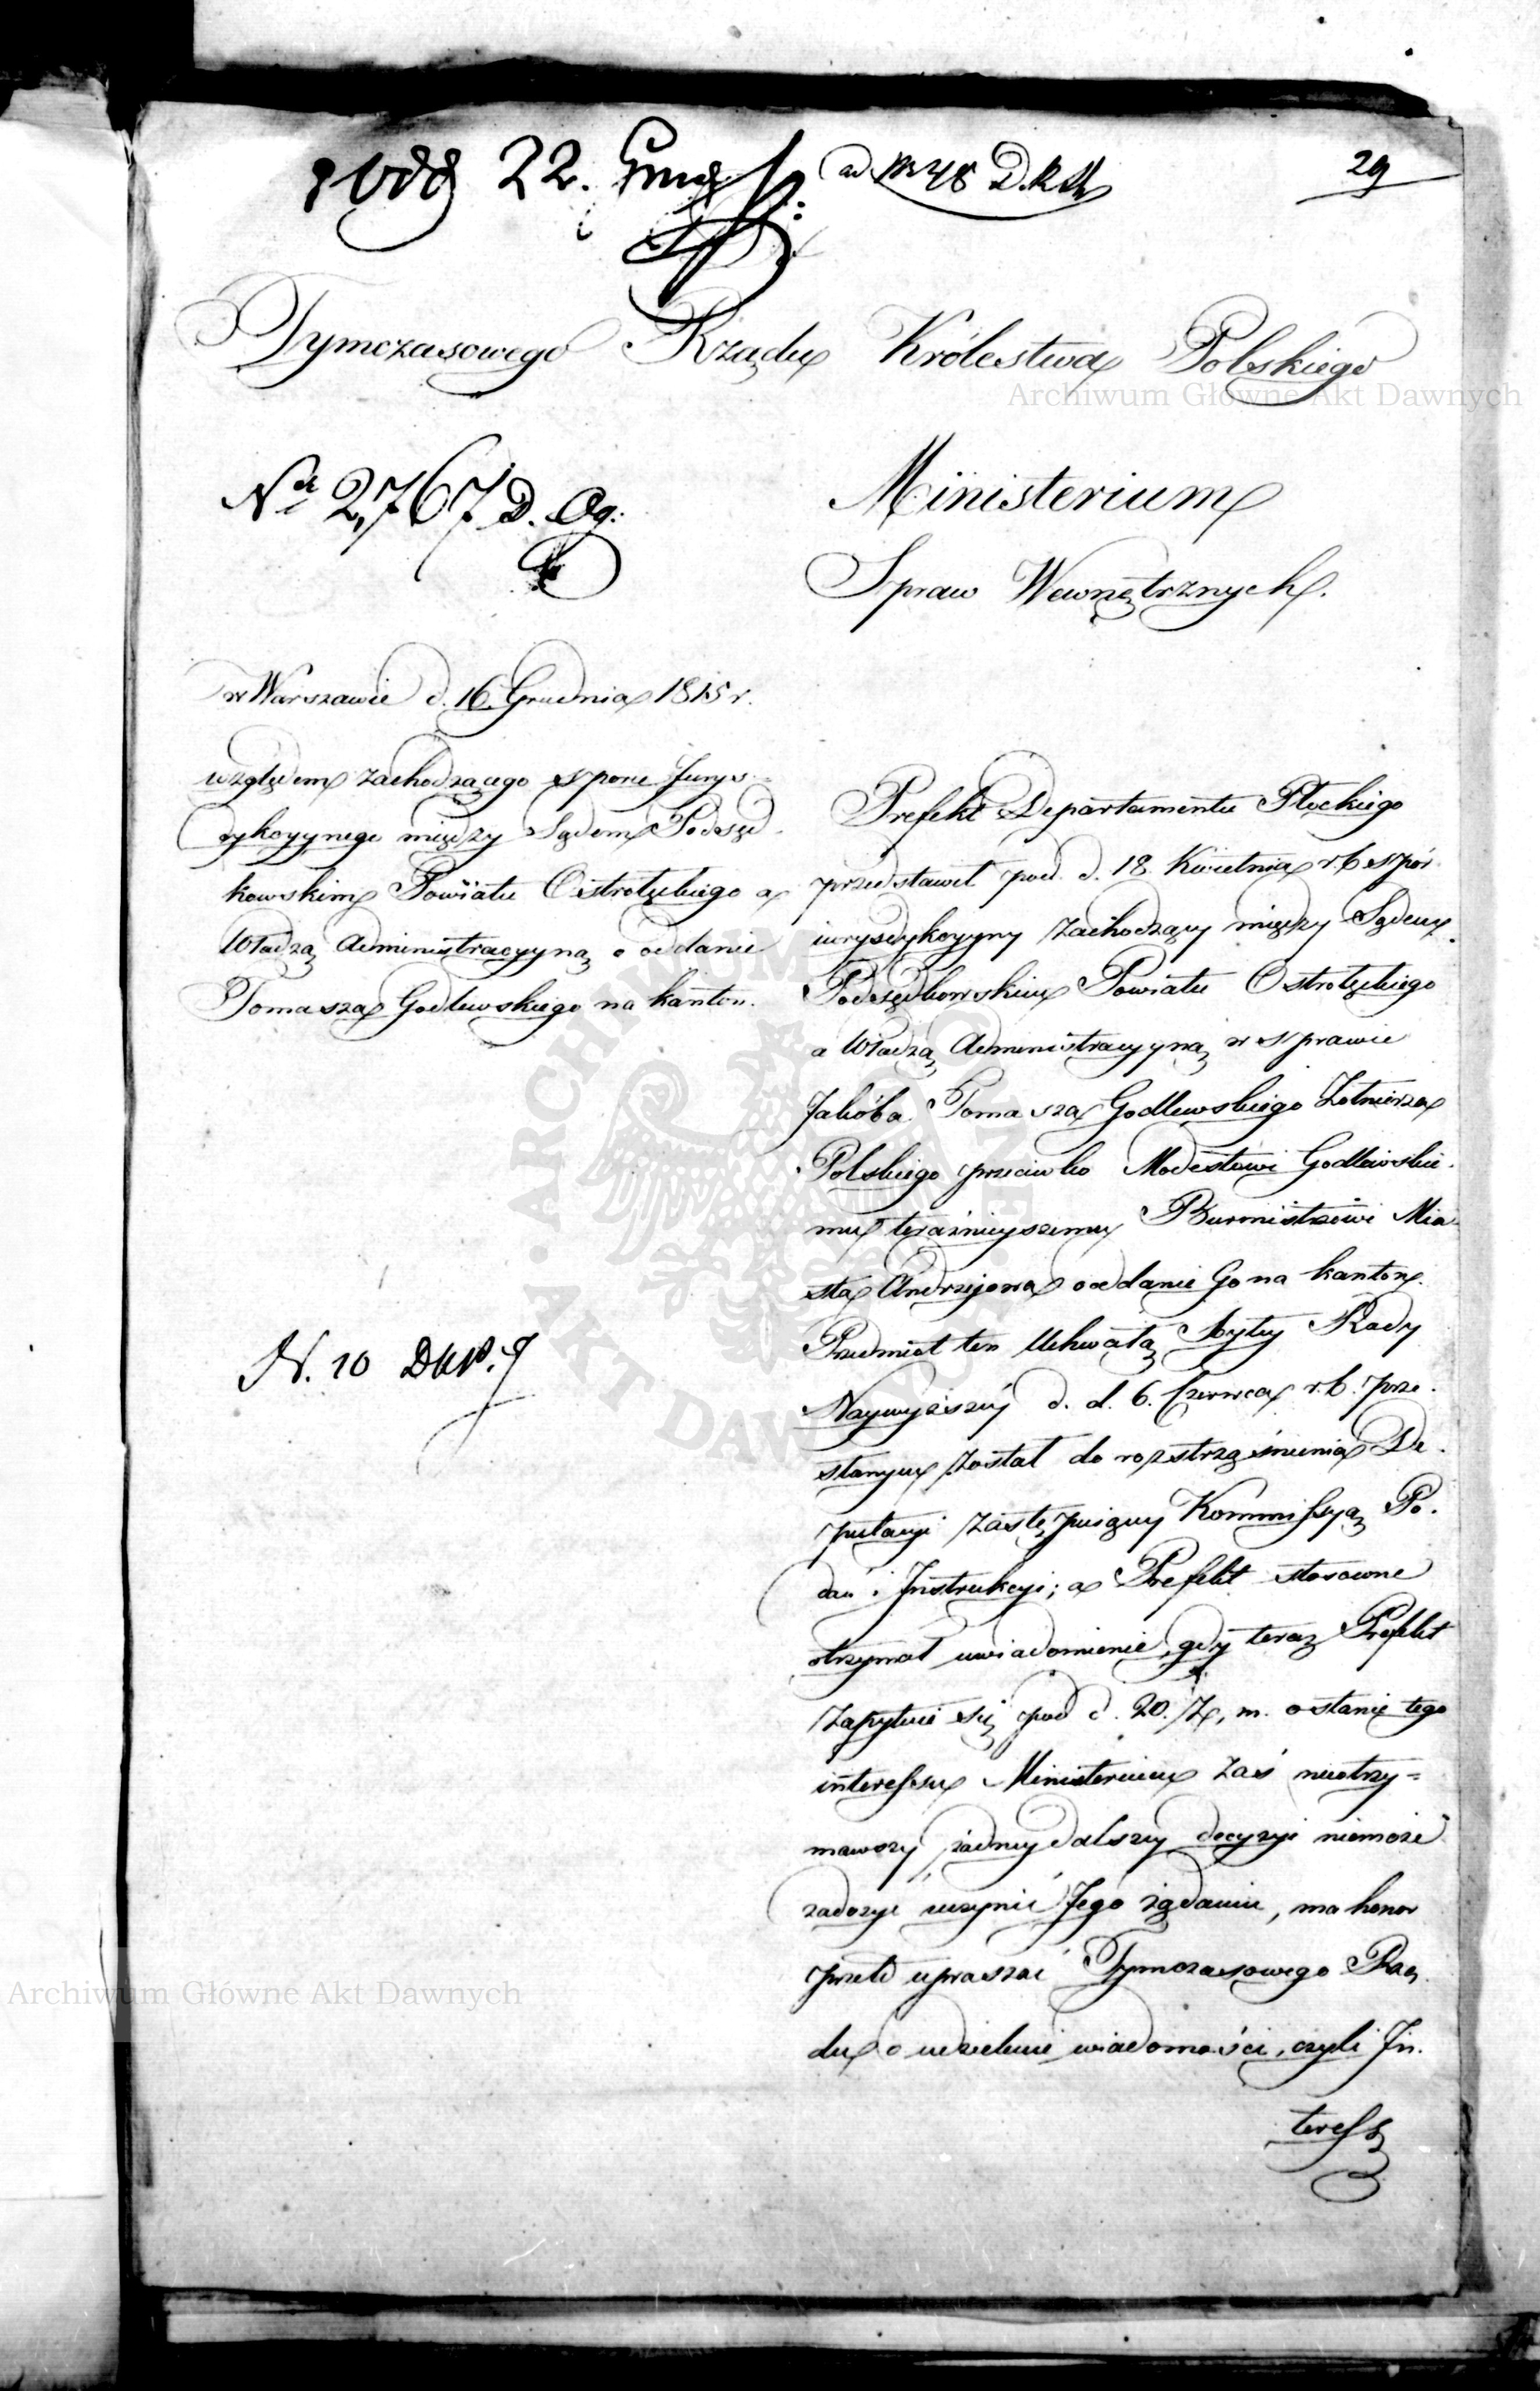 22. Grud
ad Nr 48 D.
29
Tymczasowego Rządu Królestwa Polskiego
Archiwum Główne Akt Dawnych
Nr 2,767 D. Og:
Ministerium
Spraw Wewnętrznych.
w Warszawie d. 16. Grudnia 1815 r.
względem zachodzącego sporu Jurys-
dykcyynego między Sądem Podsęd-
kowskim Powiatu Ostrołęckiego a
Władzą Administracyyną o oddanie
Tomasza Godlewskiego na kanton.
N. 10
Prefekt Departamentu Płockiego
przedstawił pod d. 18. Kwietnia r. b. spór
iurysdykcyyny zachodzący między Sądem
Podsędkowskim Powiatu Ostrołęckiego
a Władzą Administracyyną w sprawie
Jakóba Tomasza Godlewskiego Żołnierza
Polskiego przeciwko Modestowi Godlewskie-
mu teraźnieyszemu Burmistrzowi Mia-
sta Andrzejowa o oddanie Go na kanton.
Przedmiot ten Uchwałą byłey Rady
Naywyższéy d. d. 6. Czerwca r. b. prze-
słanym został do rozstrząśnienia De-
putacyi zastępuiącey Kommissyą Po-
dań i Instrukcyi; a Prefekt stosowne
otrzymał uwiadomienie, gdy teraz Prefekt
zapytuie się pod d. 20. z. m. o stanie tego
interessu Ministerium zaś nieotrzy-
mawszy żadney dalszey decyzyi niemoże
zadosyć uczynić Jego żądaniu, ma honor
przeto upraszać Tymczasowego Rzą-
du o udzielenie wiadomości, czyli In-
teress
Archiwum Główne Akt Dawnych
ARCHIWUM GŁÓWNE AKT DAWNYCH